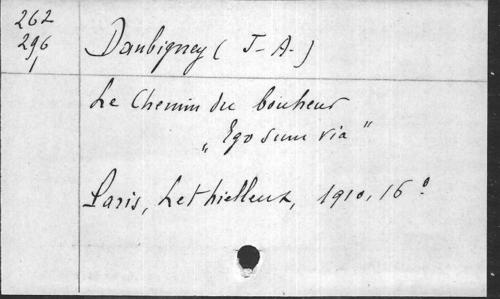 262
296
1
Daubigney (J-A-)
Le Chemin du bonheur
„Ego sum via"
Paris, Lethielleux, 1910, 16°